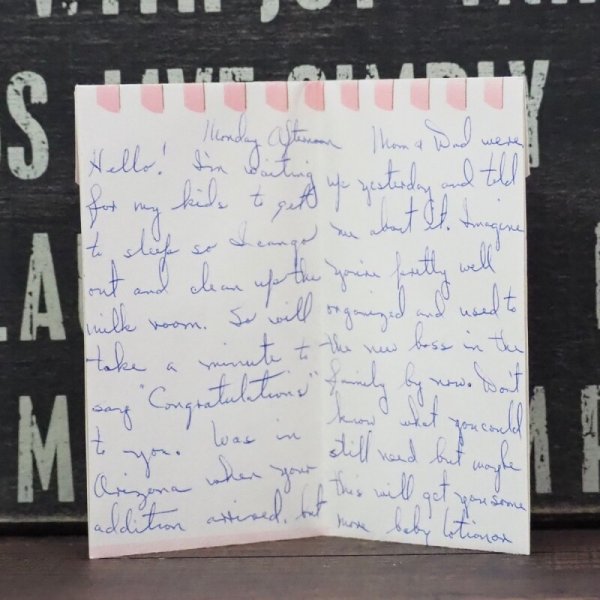 JUST
OS LIVE SIMPLY
LA
M
Monday Afternoon
Hello! I'm waiting
for my kids to get
to sleep so I can go
out and clean up the
milk room. So will
take a minute to
say "Congratulations"
to you. Was in
Arizona when your
addition arrived, but
Mom & Dad were
up yesterday and told
me about it. Imagine
you're pretty well
organized and used to
the new boss in the
family by now. Don't
know what you could
still need but maybe
this will get you some
more baby lotion or